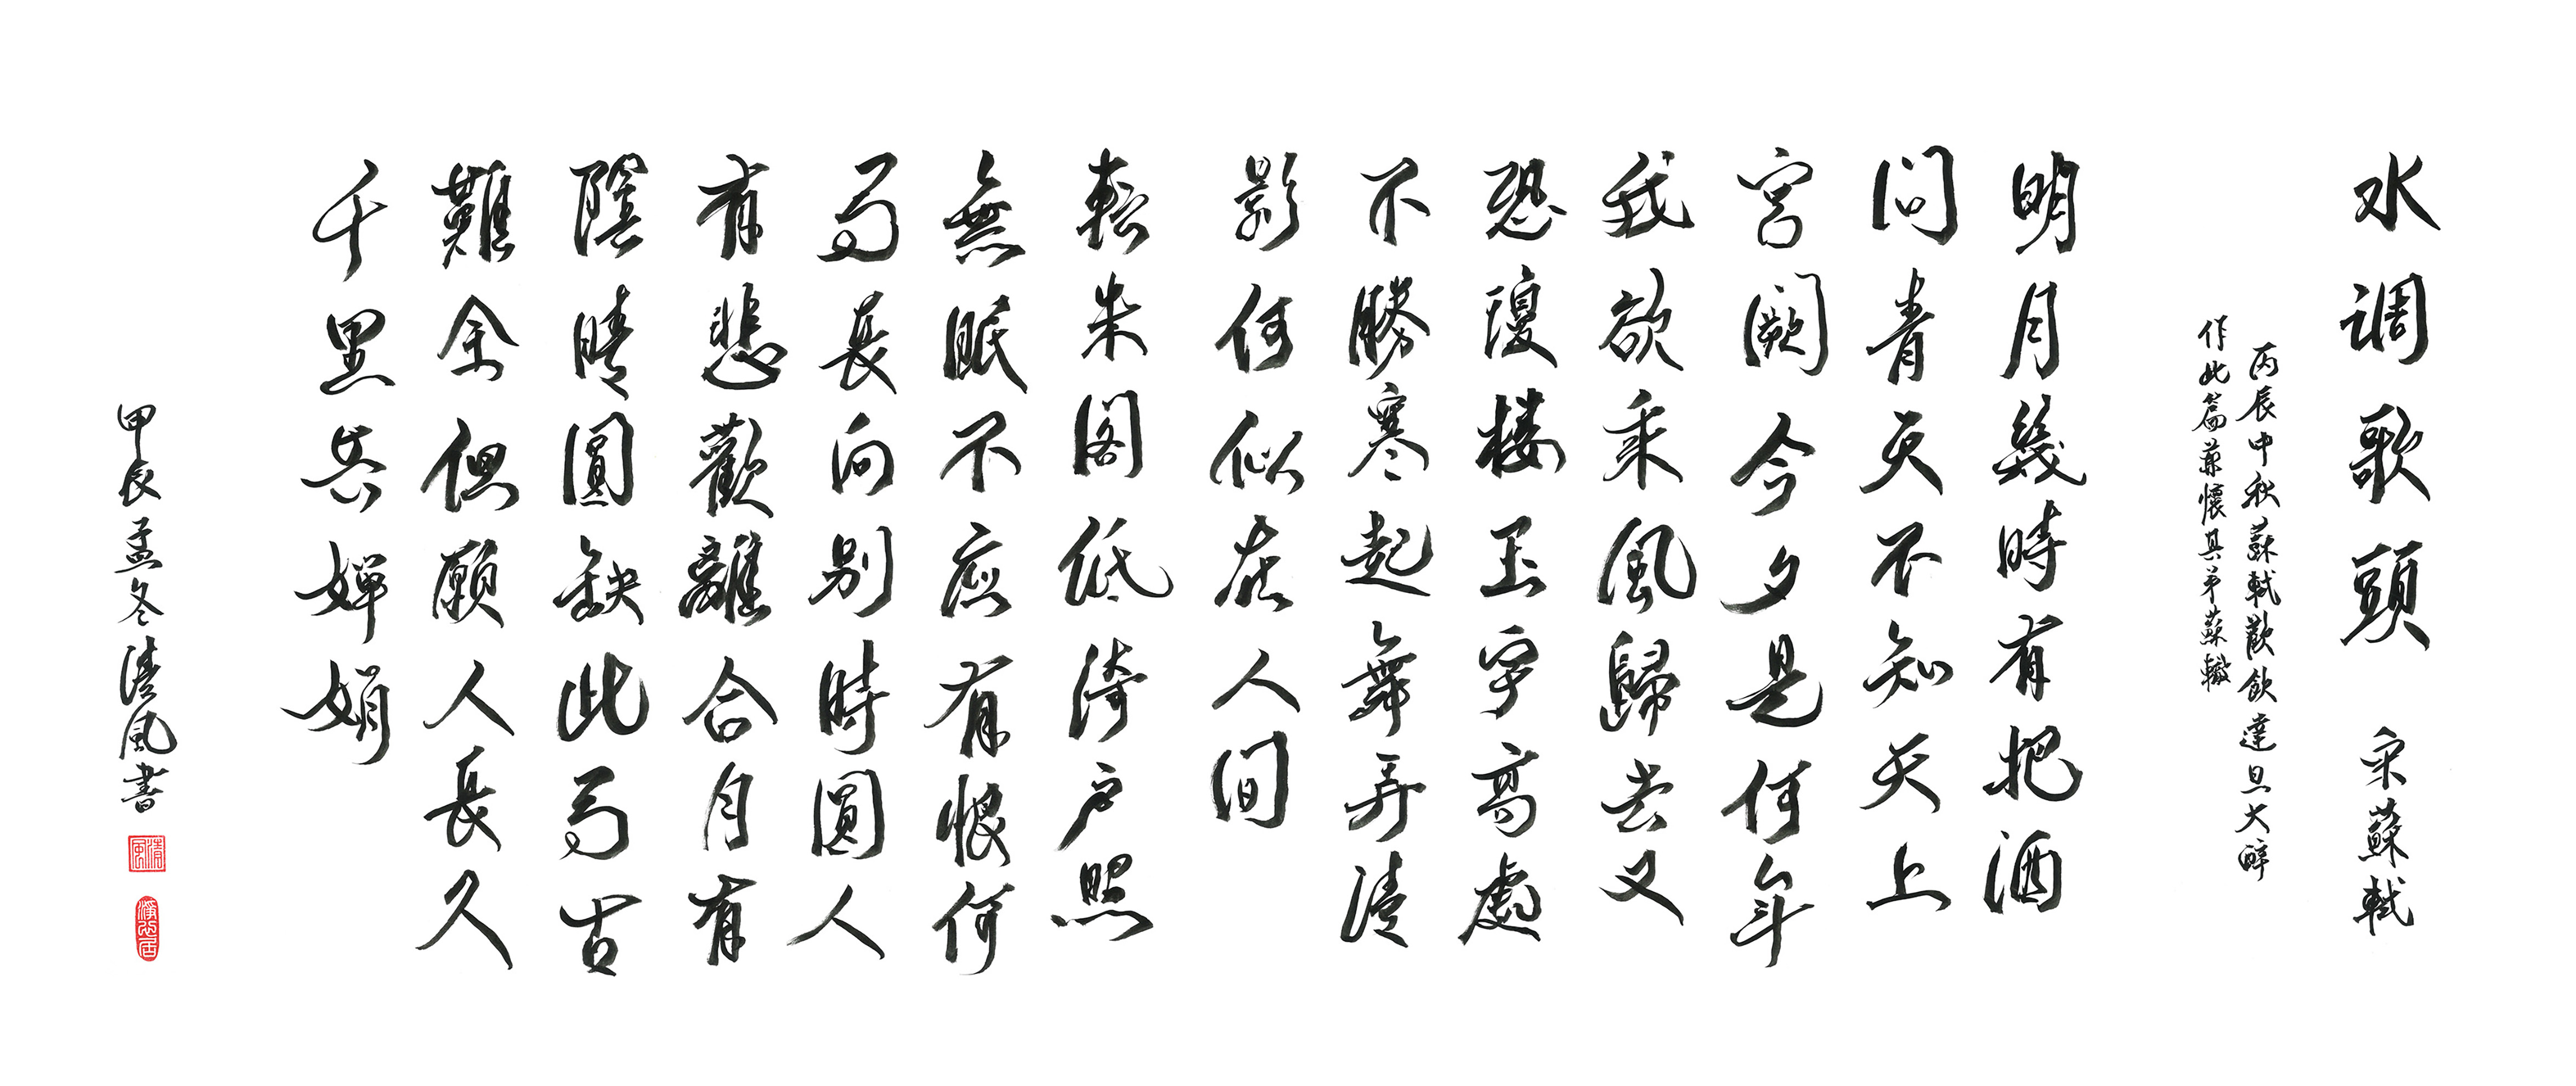 水调歌頭 宋蘇軾
丙辰中秋蘇軾歡飲達旦大醉
作此篇兼懷其弟蘇轍
明月幾時有把酒
問青天不知天上
宮闕今夕是何年
我欲乘風歸去又
恐瓊楼玉宇高處
不勝寒起舞弄清
影何似在人間
轉朱閣低綺戶照
無眠不應有恨何
事長向別時圓人
有悲歡離合月有
陰晴圓缺此事古
難全但願人長久
千里共嬋娟
甲辰孟冬清風書
清風